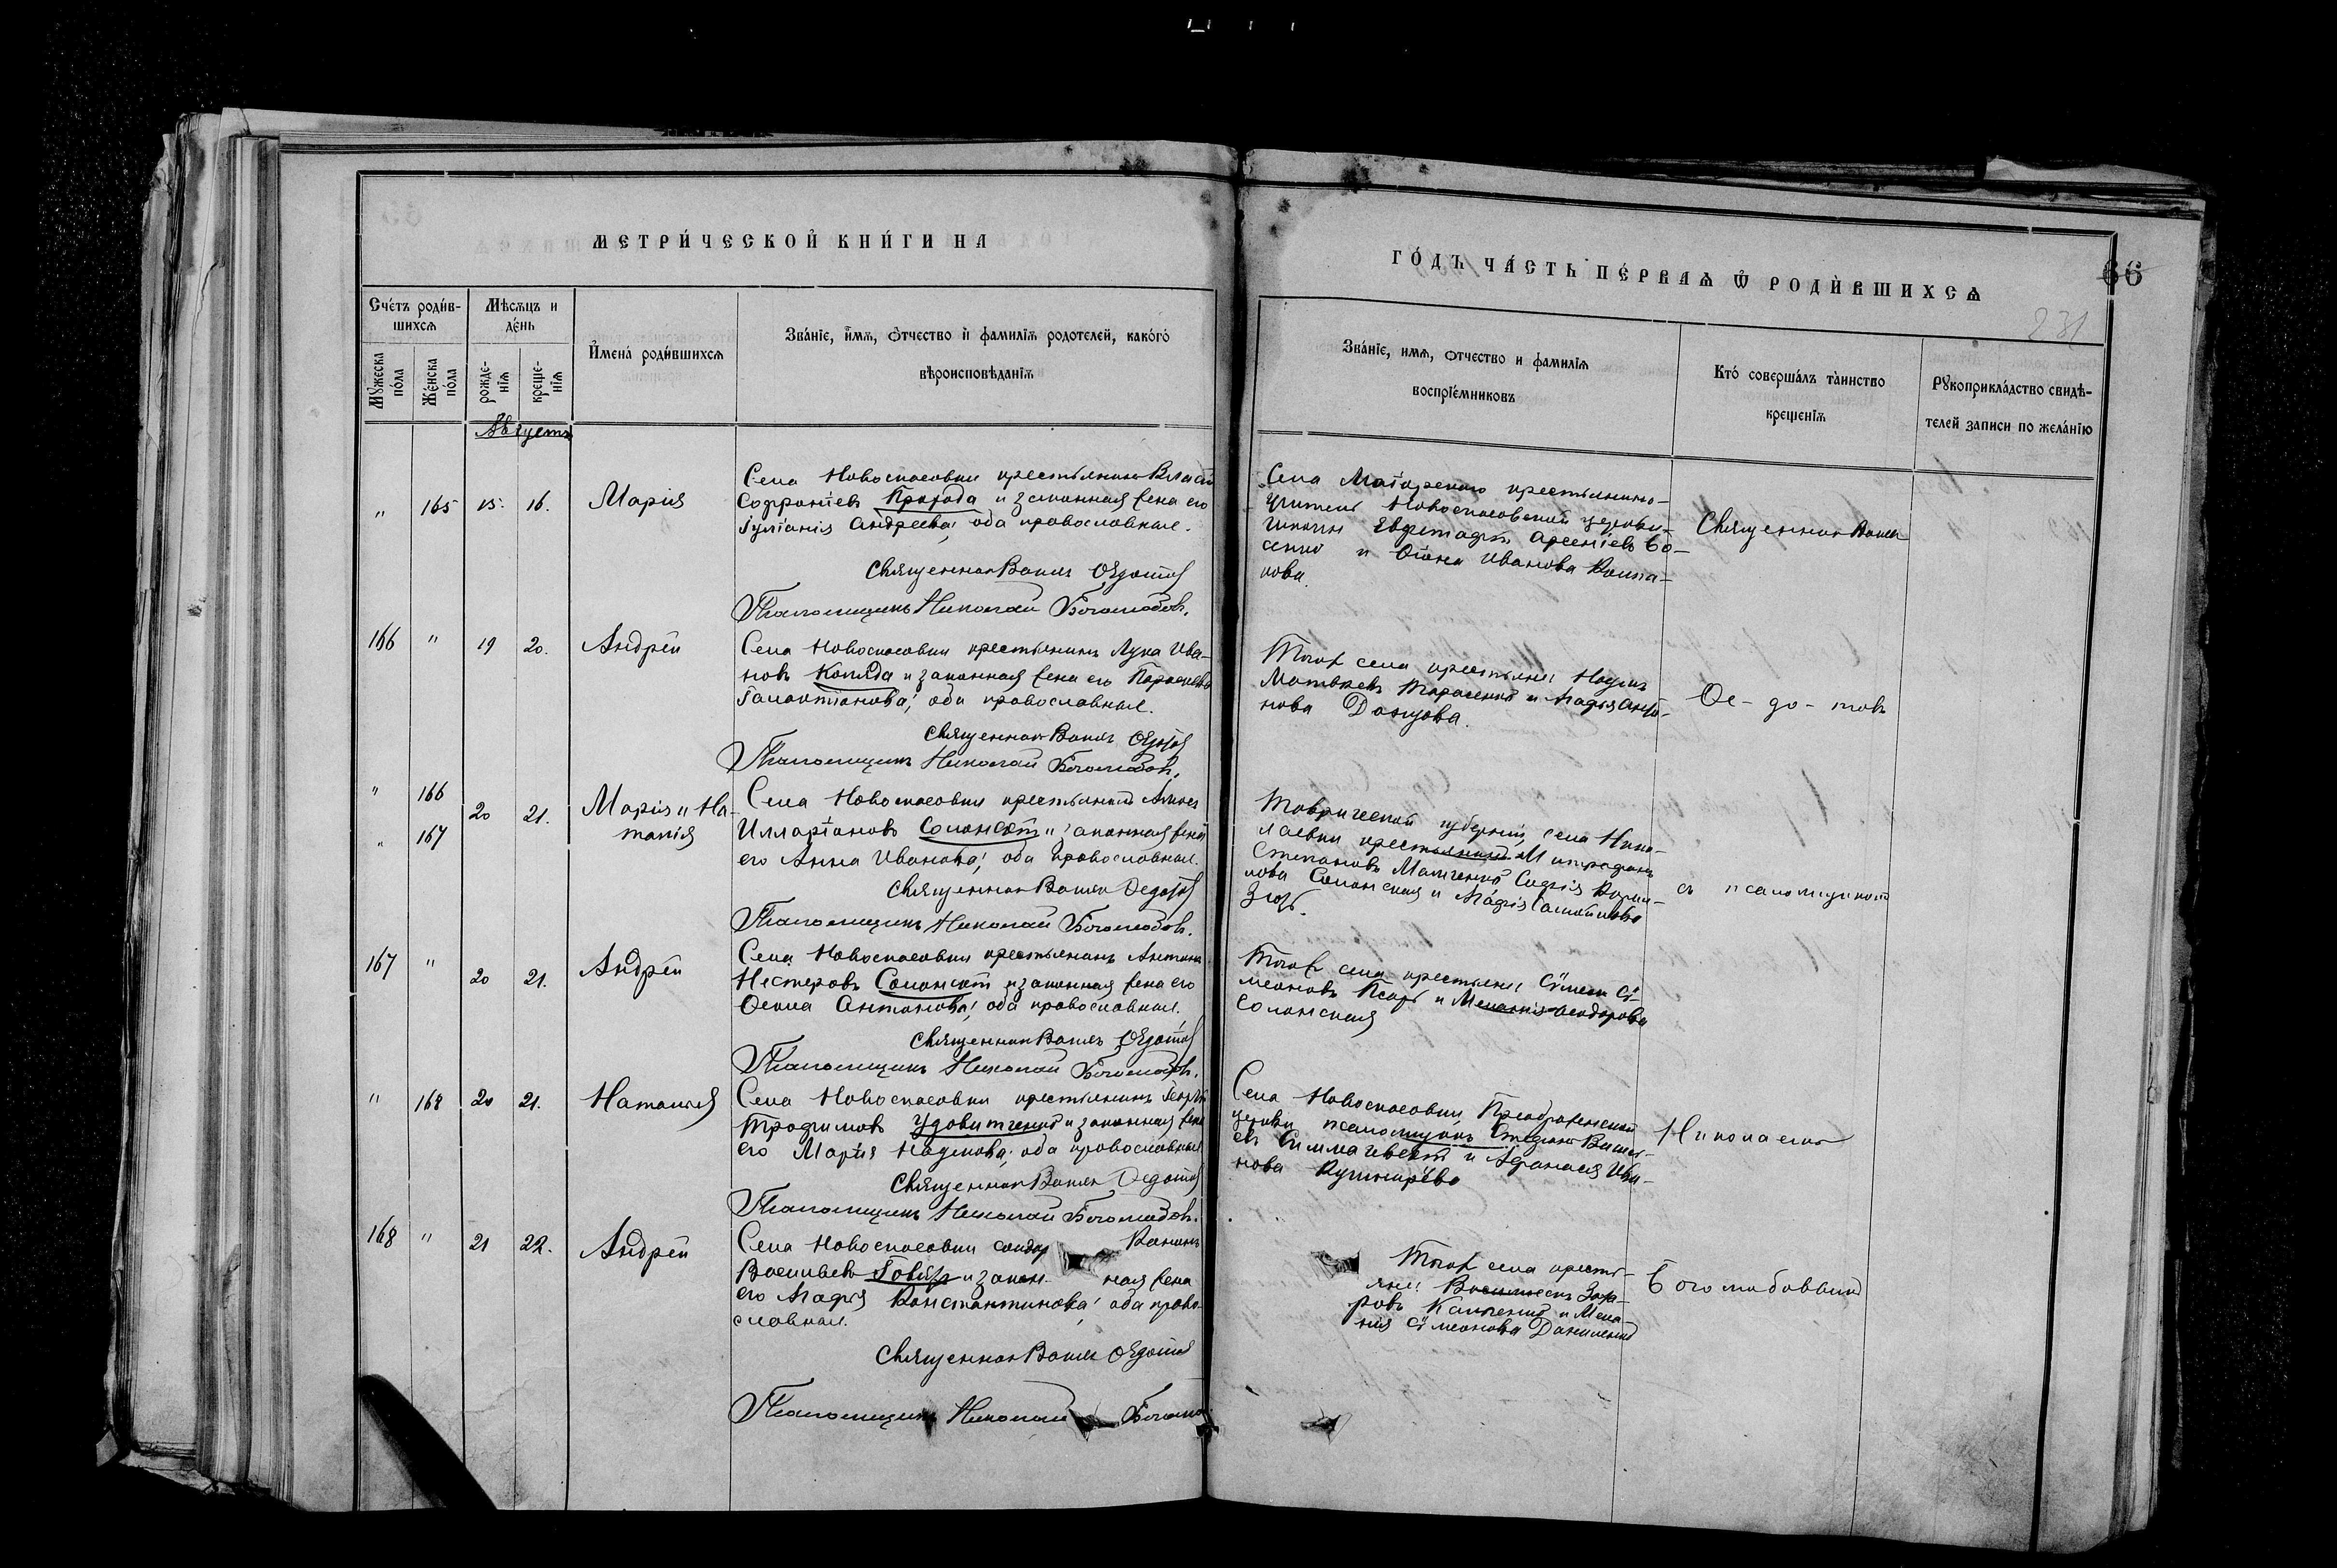 МЕТРИ́ЧЕСКОЙ КНИ́ГИ НА
ГО́ДЪ ЧА́СТЬ ПЕ́РВАѦ Ѿ РОДИ́ВШИХСѦ
66
231
Сче́тъ роди́в-
шихсѧ
Мѣ́сѧцъ и
де́нь
Мꙋжеска
по́ла
Же́нска
по́ла
рожде-
нїѧ
креще-
нїѧ
Имена́ роди́вшихсѧ
Зва́нїе, имѧ, о́тчество и фамилїѧ родотелей, како́го
вѣроисповѣ́данїѧ
Зва́нїе, имѧ, отчество и фамилїѧ
воспрїе́мниковъ
Кто́ соверша́лъ та̀инство
крещенїѧ
Рꙋкоприкла́дство свидѣ-
телей записи по жела́нїю
Августъ
" 165 15. 16. Марія
Села Новоспасовки крестьянинъ Власій
Софроніевъ Прокода и законная жена его
Іуліанія Андреева; оба православные.
Священникъ Ѳедотов
Псаломщикъ Николай Боголюбовъ.
Села крестьянинъ-
учитель Новоспасовской церков-
школы Евстафій Арсеніевъ Бо-
сенко и Иванова
нова.
Священникъ
166 " 19 20. Андрей
Села Новоспасовки крестьянинъ Лука Ива-
новъ Коляда и законная жена его Параскева
Галактіонова; оба православные.
Священникъ Ѳедотов
Псаломщикъ Николай Боголюбовъ.
Тогоже села крестьяне Наумъ
Матвѣевъ Тарасенко и Марія
нова Донцова.
Ѳе-до-товъ
" 166 20 21. Марія и На-
" 167 талія
Села Новоспасовки крестьянинъ
Илларіоновъ Солонскій и законная жена
его Анна Иванова; оба православные.
Священникъ Ѳедотов
Псаломщикъ Николай Боголюбовъ.
Таврической губерніи, села Нико-
лаевки крестьянинъ Митрофанъ
Степановъ Софія
лова Солонская и Марія Самойлова
съ псаломщикомъ
167 " 20 21. Андрей
Села Новоспасовки крестьянинъ Антонъ
Нестеровъ Солонскій и законная жена его
Ѳекла Антонова; оба православные.
Священникъ Ѳедотов
Псаломщикъ Николай Боголюбовъ.
Тогоже села крестьяне Сѵмеонъ Сѵ-
меоновъ и Меланія Ѳеодорова
Солонская
" 168 20 21. Наталія
Села Новоспасовки крестьянинъ Георгій
Трофимовъ Удовитченко и законная жена
его Марія Наумова; оба православные
Священникъ Ѳедотов
Псаломщикъ Николай Боголюбовъ.
Села Новоспасовки, Преображенской
церкви псаломщикъ Стефанъ
евъ и Афанасія Ива-
нова Кушнирёва
Николаемъ
168 " 21 22. Андрей
Села Новоспасовки
Васильевъ и закон- ная жена
его Марія Константинова; оба право-
славные.
Священникъ Ѳедотов
Псаломщикъ Николай
Тогоже села кресть-
яне: Василій
ровъ и Мела-
нія Сѵмеонова Даниленко
Боголюбовымъ